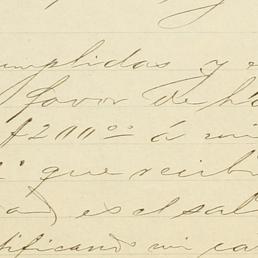 cumplidas y e
favor de h
$200.00 á mi
que recib
es el sal
tificando mi ca